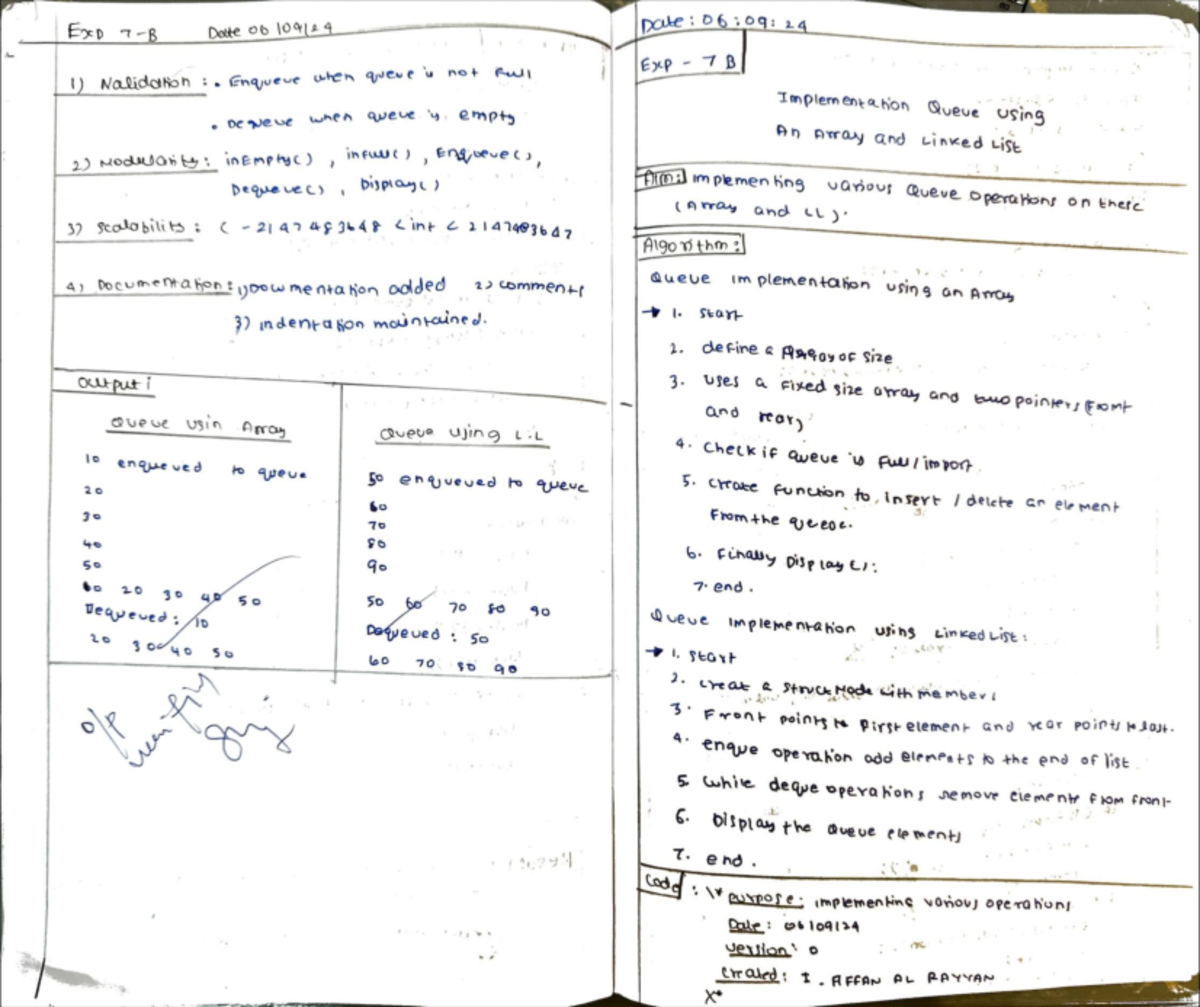 Exp 7-B Date 06/09/24
1) Validation : • Enqueue when queue is not full
• Dequeue when queue is empty
2) Modularity : inEmpty(), inFull(), Enqueue(),
Dequeue(), Display()
3) Scalability : (-2147483648 < int < 2147483647
4) Documentation : 1) Documentation added 2) comments
3) indentation maintained.
Output :
Queue usin Array
10 enqueued to queue
20
30
40
50
10 20 30 40 50
Dequeued : 10
20 30 40 50
Queue using L.L
50 enqueued to queue
60
70
80
90
50 60 70 80 90
Dequeued : 50
60 70 80 90
O/P
Date : 06:09:24
Exp - 7 B
Implementation Queue using
An Array and Linked List
Aim: Implementing various Queue operations on these
(Array and LL).
Algorithm :
Queue implementation using an Array
→ 1. Start
2. define a Array of size
3. Uses a fixed size array and two pointers (front
and rear)
4. Check if queue is full/import
5. Create function to insert / delete an element
from the queue.
6. Finally Display();
7. end.
Queue implementation using Linked List :
→ 1. Start
2. Creat a struct Node with members
3. Front points to first element and rear points to last.
4. enque operation add elements to the end of list
5. While deque operations remove elements from front
6. Display the queue elements
7. end.
Code : \* Purpose : implementing various operations
Date : 06/09/24
Version : 0
Created : I. AFFAN AL RAYYAN
X*